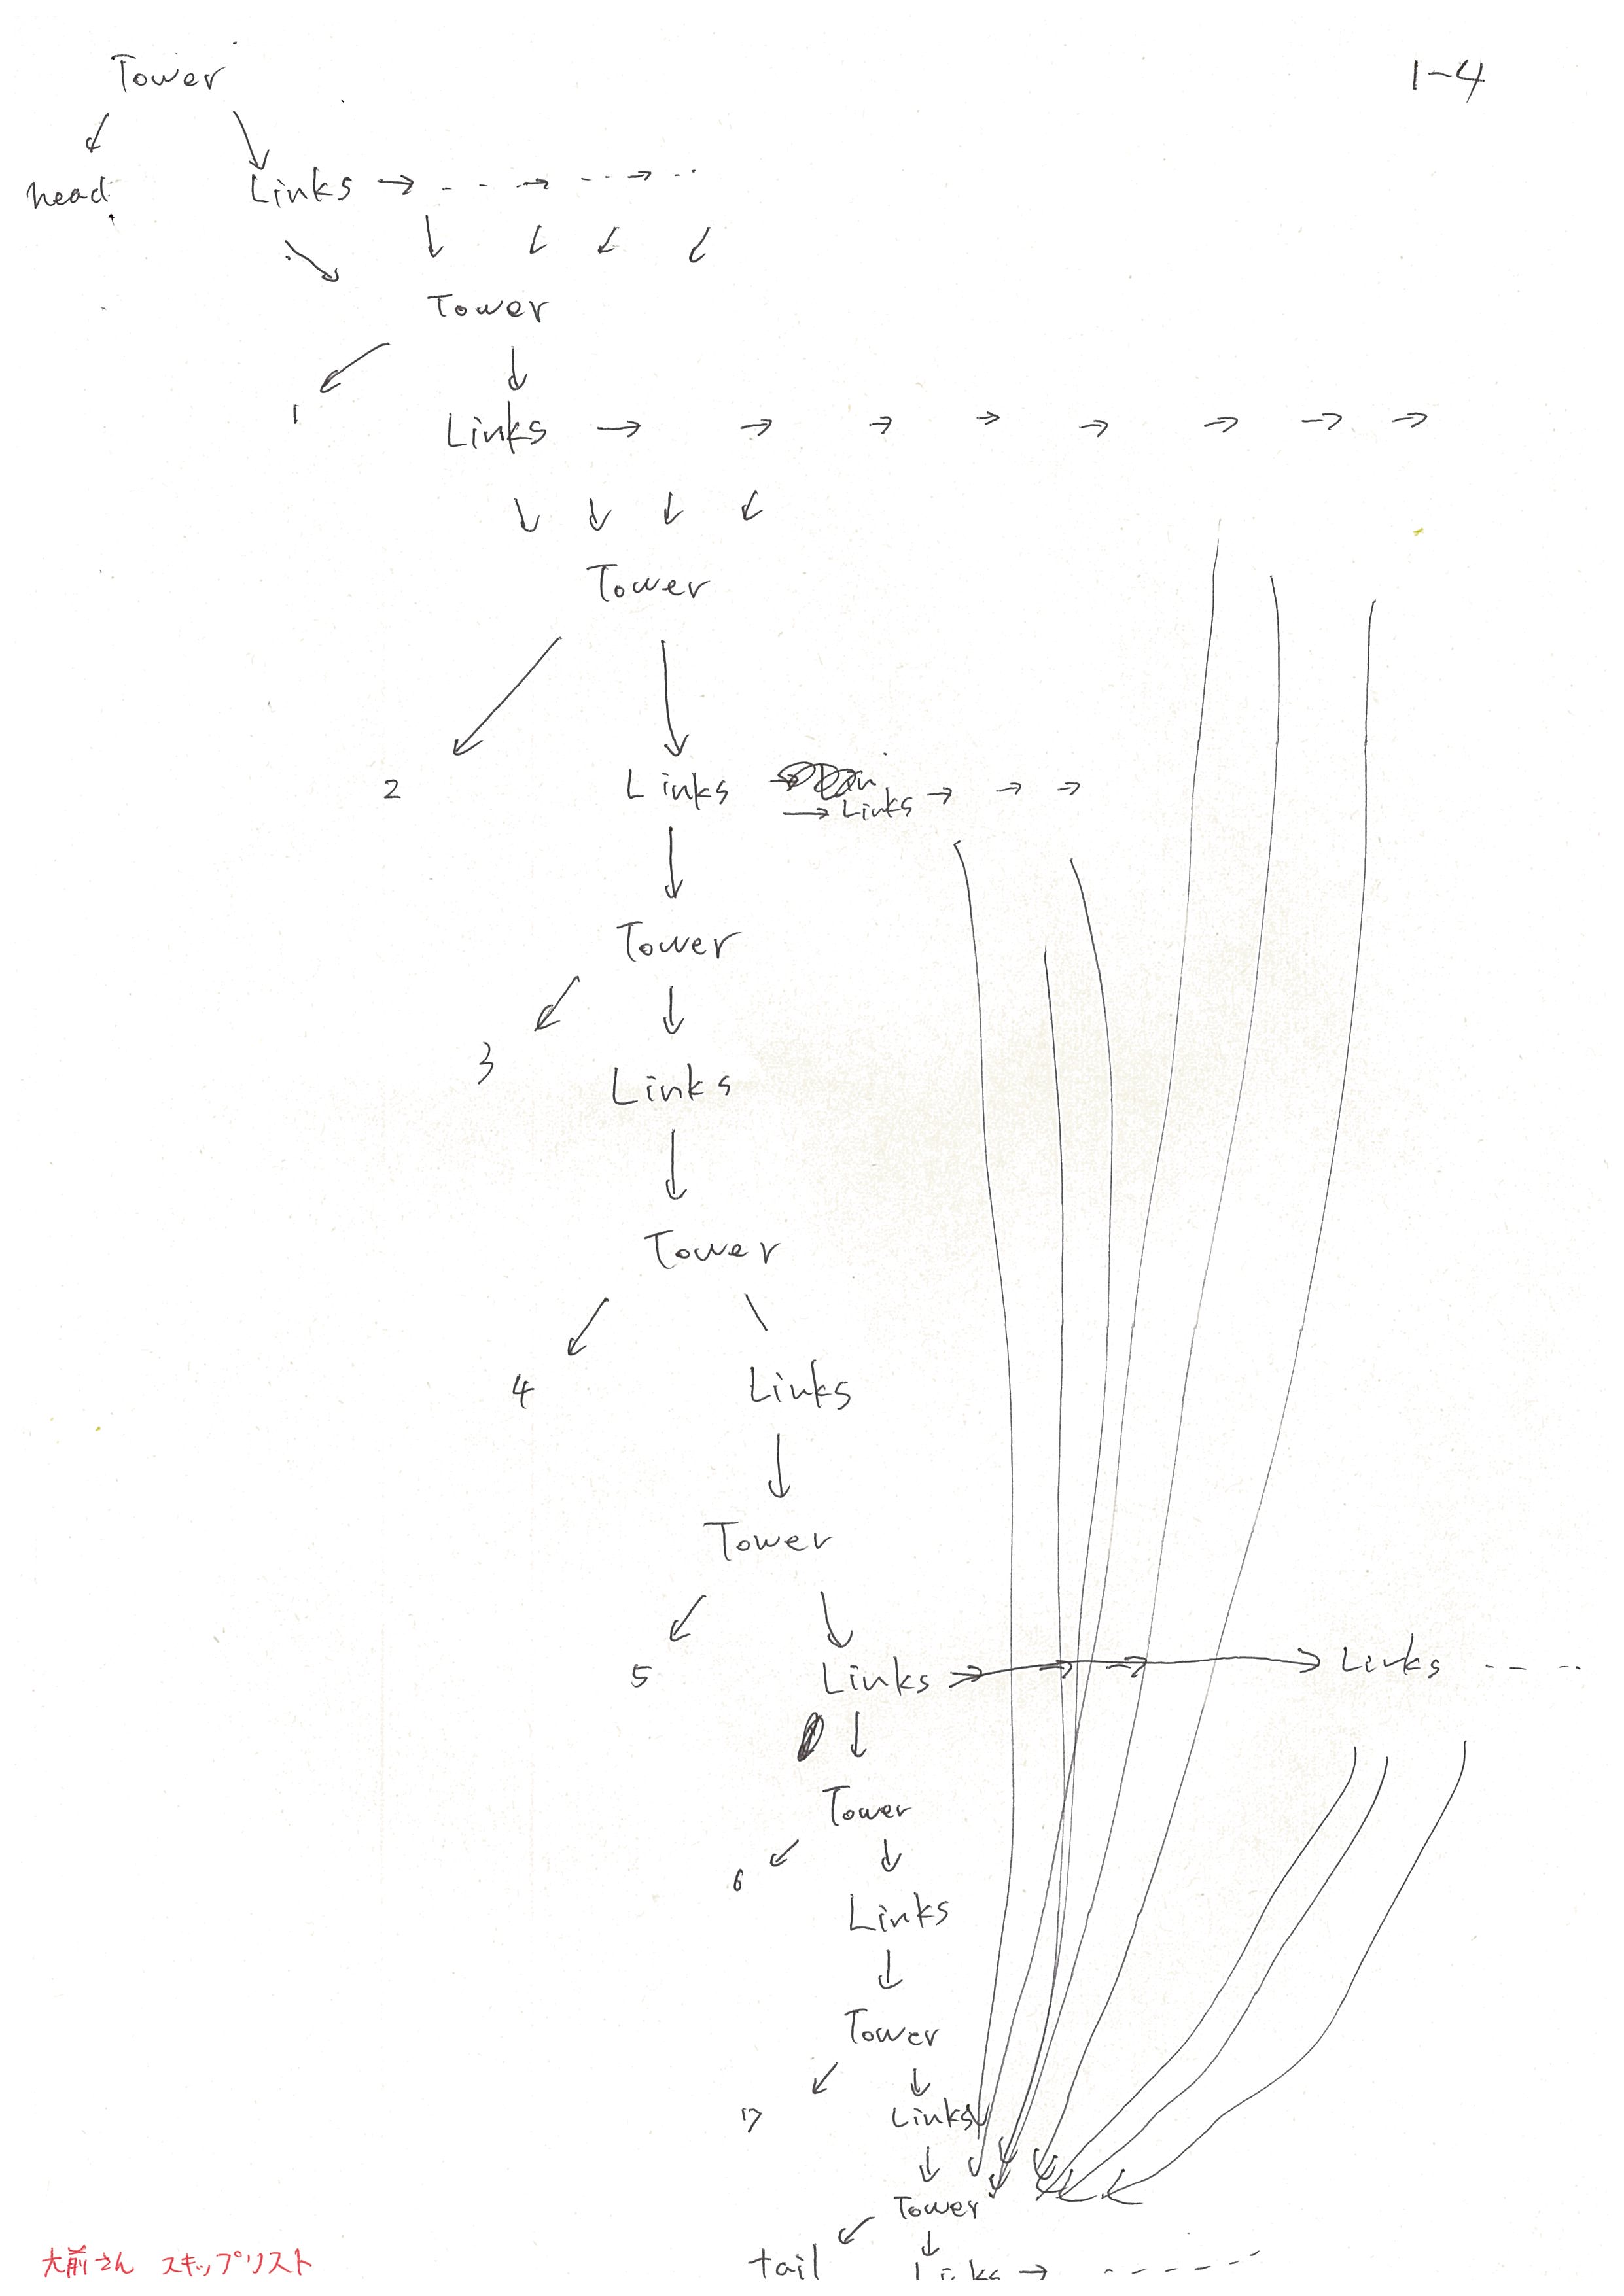 1-4
Tower
head Links
Tower
1
Links
Tower
2 Links
→ Links
Tower
3
Links
Tower
4 Links
Tower
5 Links Links
Tower
6
Links
Tower
7 Links
Tower
tail Links
大前さん スキップリスト